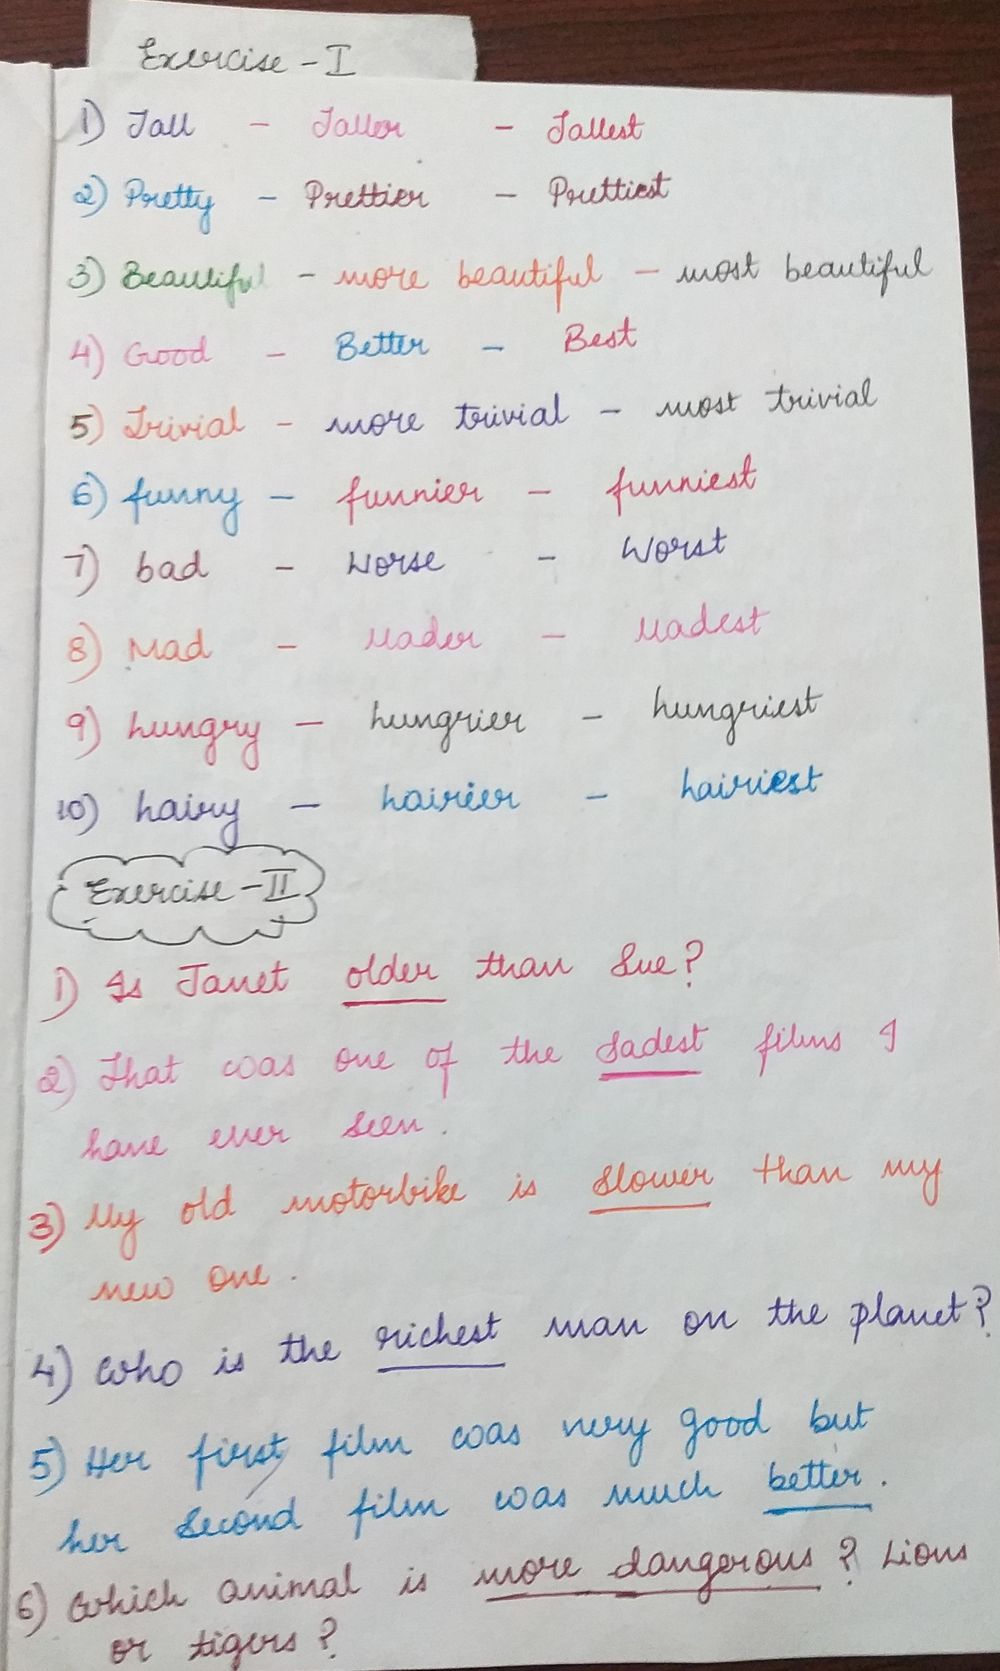 Exercise - I
1) Tall - Taller - Tallest
2) Pretty - Prettier - Prettiest
3) Beautiful - more beautiful - most beautiful
4) Good - Better - Best
5) Trivial - more trivial - most trivial
6) funny - funnier - funniest
7) bad - Worse - Worst
8) Mad - Mader - Madest
9) hungry - hungrier - hungriest
10) hairy - hairier - hairiest
Exercise - II
1) Is Janet older than Sue?
2) That was one of the sadest films I
have ever seen.
3) My old motorbike is slower than my
new one.
4) Who is the richest man on the planet?
5) Her first film was very good but
her second film was much better.
6) Which animal is more dangerous? Lions
or tigers?